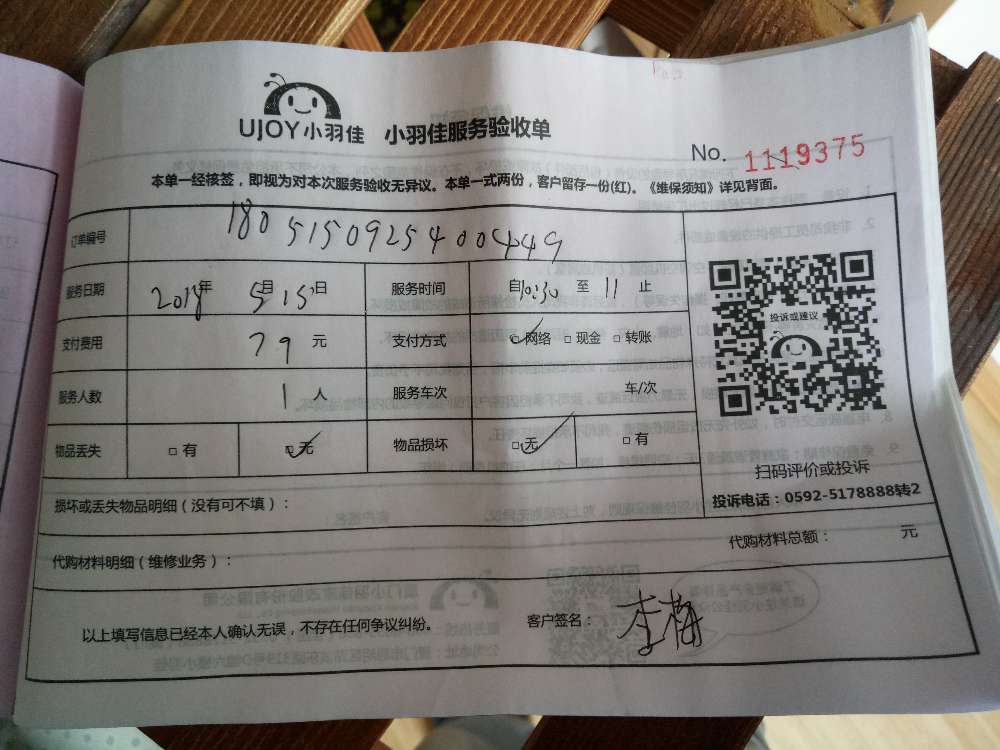 UJOY小羽佳 小羽佳服务验收单
No. 1119375
本单一经核签，即视为对本次服务验收无异议。本单一式两份，客户留存一份(红)。《维保须知》详见背面。
订单编号 180515092540004449
服务日期 2018年 5月15日 服务时间 自10:30 至 11 止
支付费用 79 元 支付方式 □网络 □现金 □转账
服务人数 1 人 服务车次 车/次
物品丢失 □有 □无 物品损坏 □无 □有
投诉或建议
扫码评价或投诉
投诉电话：0592-5178888转2
损坏或丢失物品明细（没有可不填）：
代购材料明细（维修业务）： 代购材料总额： 元
以上填写信息已经本人确认无误，不存在任何争议纠纷。 客户签名： 李梅